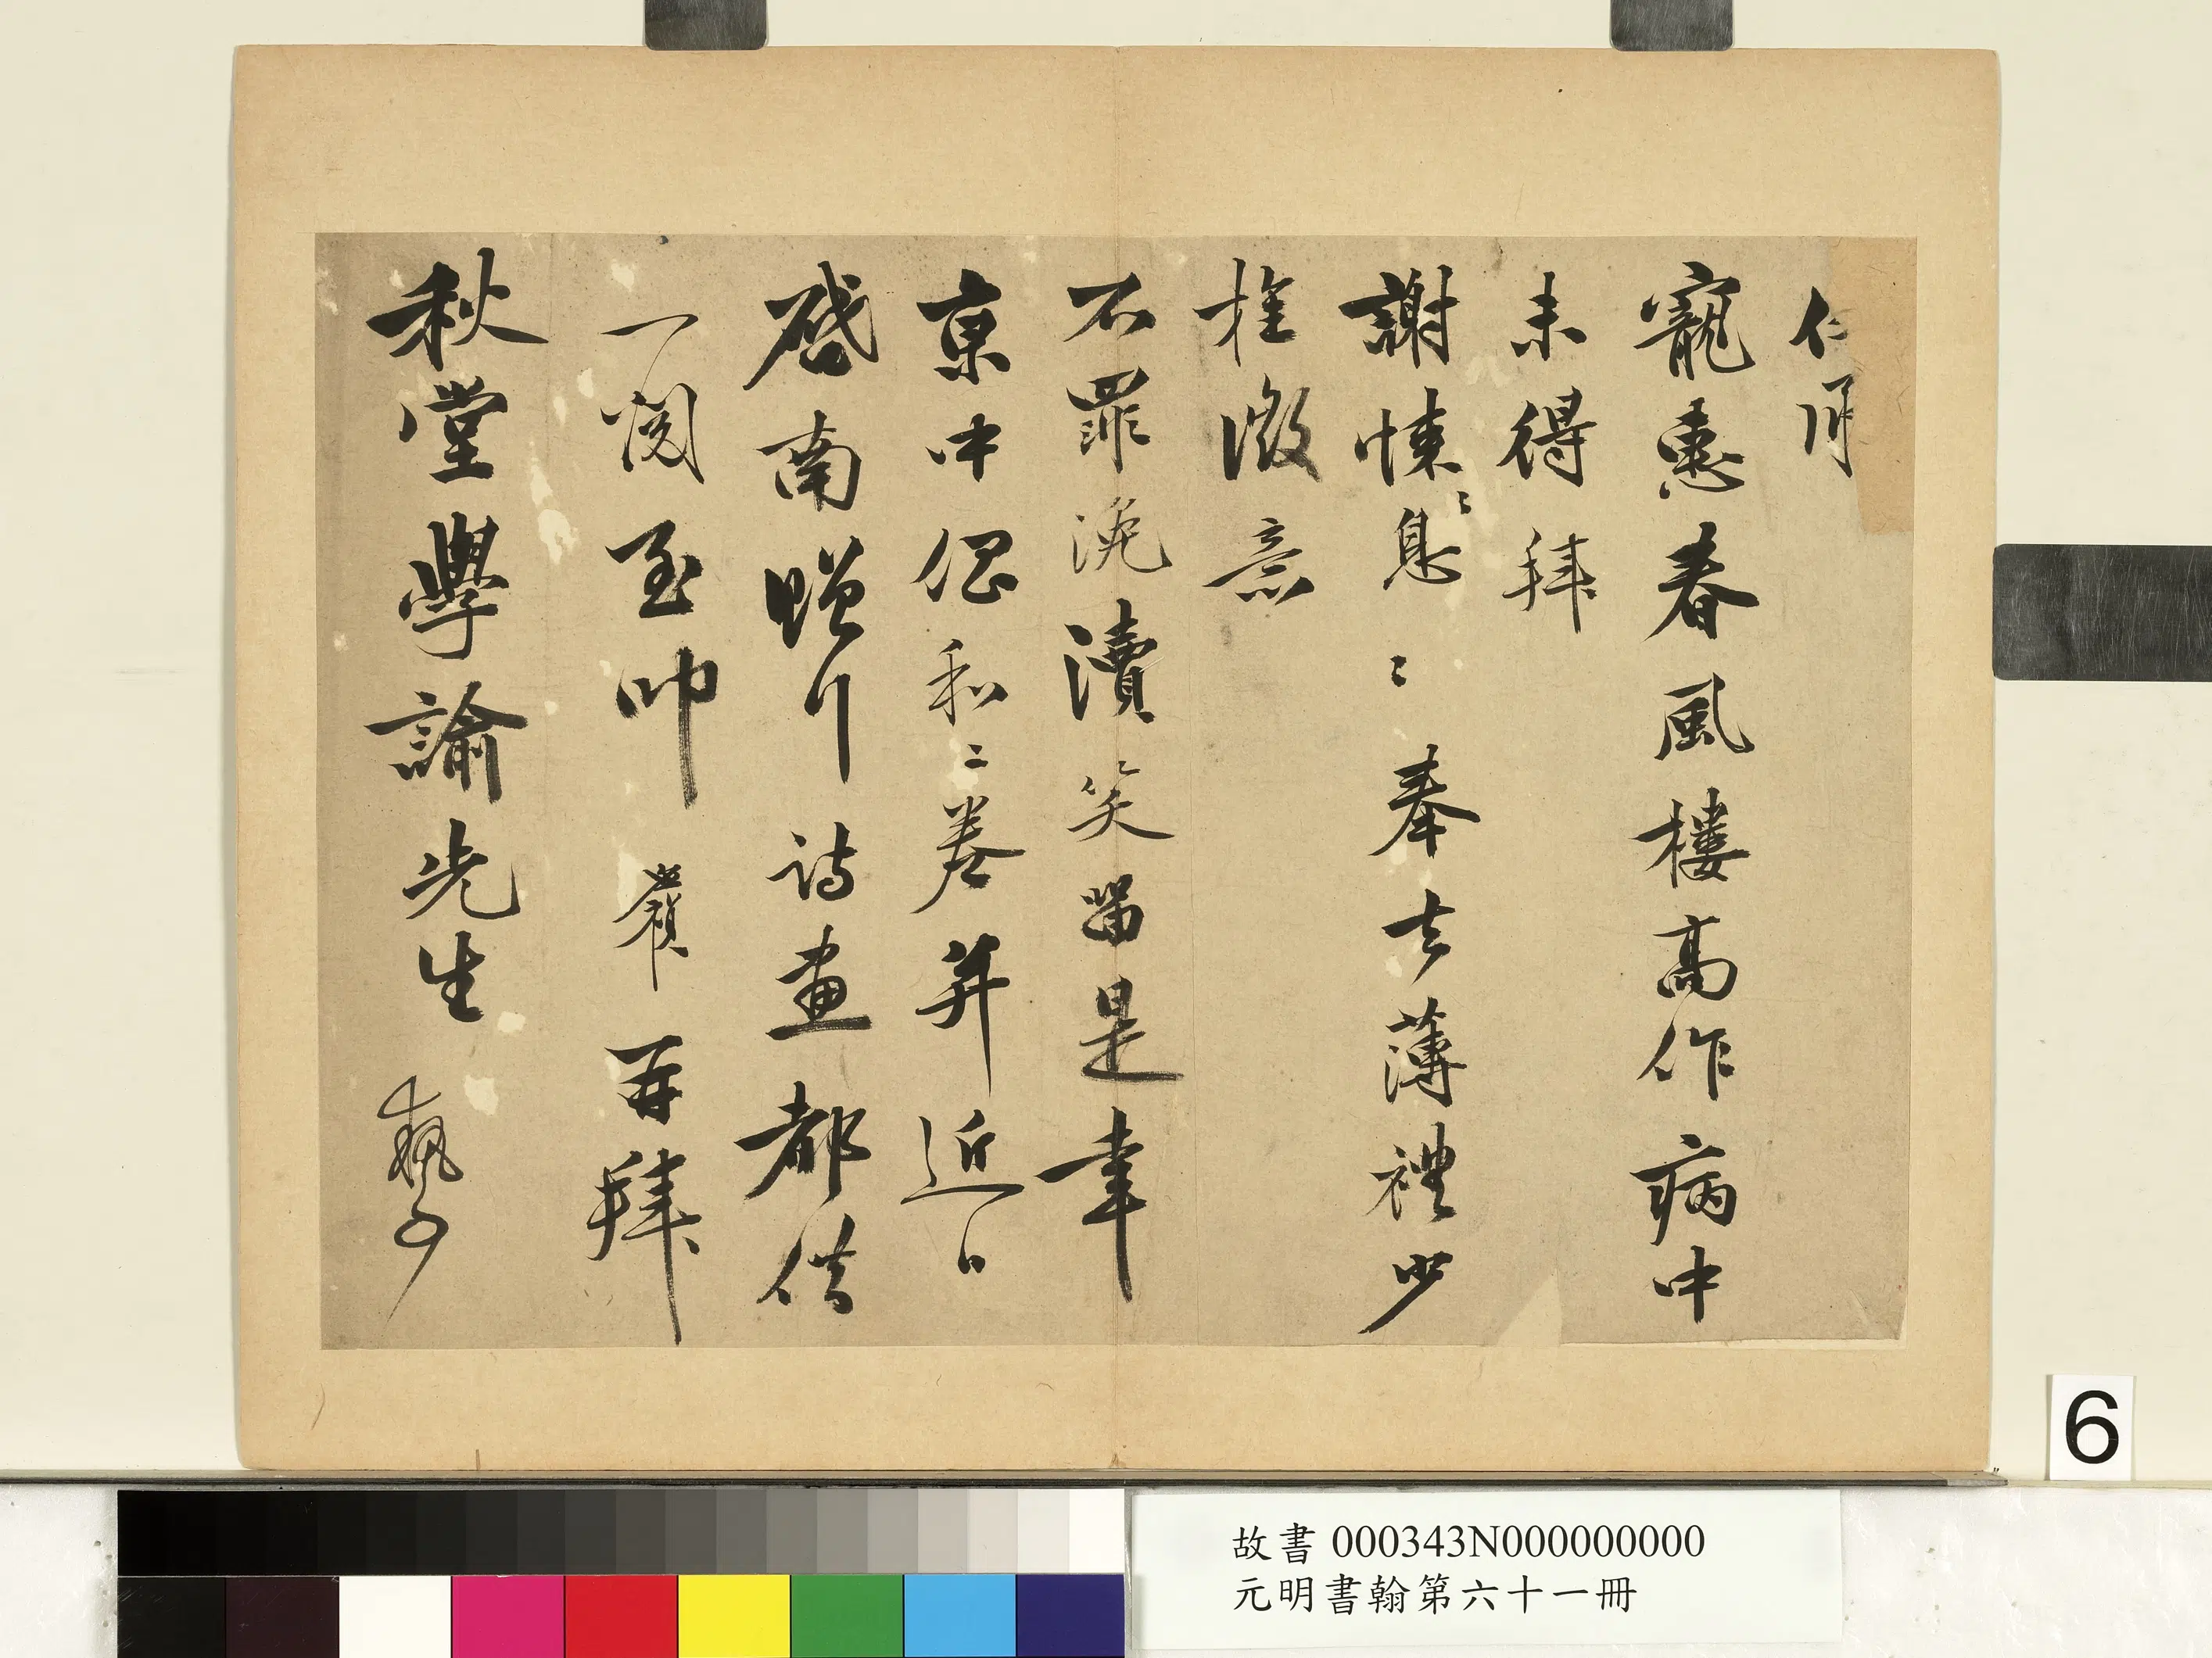 寵惠春風樓高作病中
未得拜
謝悚〻息〻奉去薄禮少
旌微意
不罪浼瀆笑留是幸
京中倡和二卷并近日
啓南贈行詩畫都供
一閱至叩 嶺再拜
秋堂學諭先生
故書 000343N000000000
元明書翰第六十一冊
6